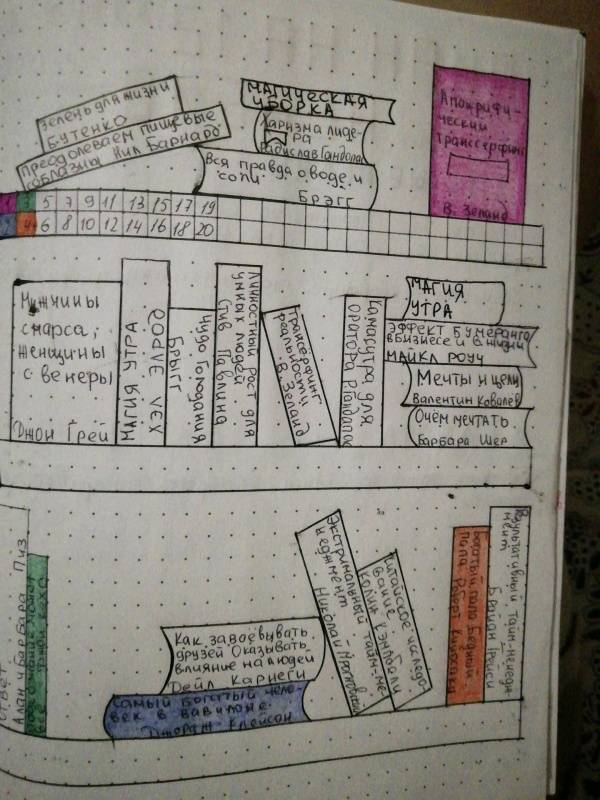 Зелень для жизни
Бутенко
Преодолеваем пищевые
соблазны Нил Барнард
МАГИЧЕСКАЯ
УБОРКА
Харизма лиде-
ра
Радислав Гандапас
Вся правда о воде и
соли
Брэгг
Апокрифи-
ческий
трансерфинг
В. Зеланд
3 5 7 9 11 13 15 17 19
4 6 8 10 12 14 16 18 20
Мужчины
с марса,
женщины
с венеры
Джон Грей
МАГИЯ УТРА
ЭЛРОД ХЕЛ
Брыгг
Чудо голодания
Личностный рост для
умных людей
Стив Павлина
Трансерфинг
реальности
В. Зеланд
Камасутра для
оратора Ргандапас
МАГИЯ
УТРА
ЭФФЕКТ БУМЕРАНГА
в бизнесе и в жизни
МАЙКЛ РОУЧ
Мечты и цели
Валентин Ковалев
О чём мечтать.
Барбара Шер
Ответ
Алан и Барбара Пиз
Как завоёвывать
друзей Оказывать
влияние на людей
Дейл Карнеги
Самый богатый чело-
век в вавилоне.
Джордж Клейсон
Экстримальный тайм-ме-
неджмент
Николай
Китайское исследо-
вание
Колин Кэмпбелл
Богатый папа Бедный
папа Роберт Кийосаки
Результативный тайм-менедж-
мент
Брайан Трейси